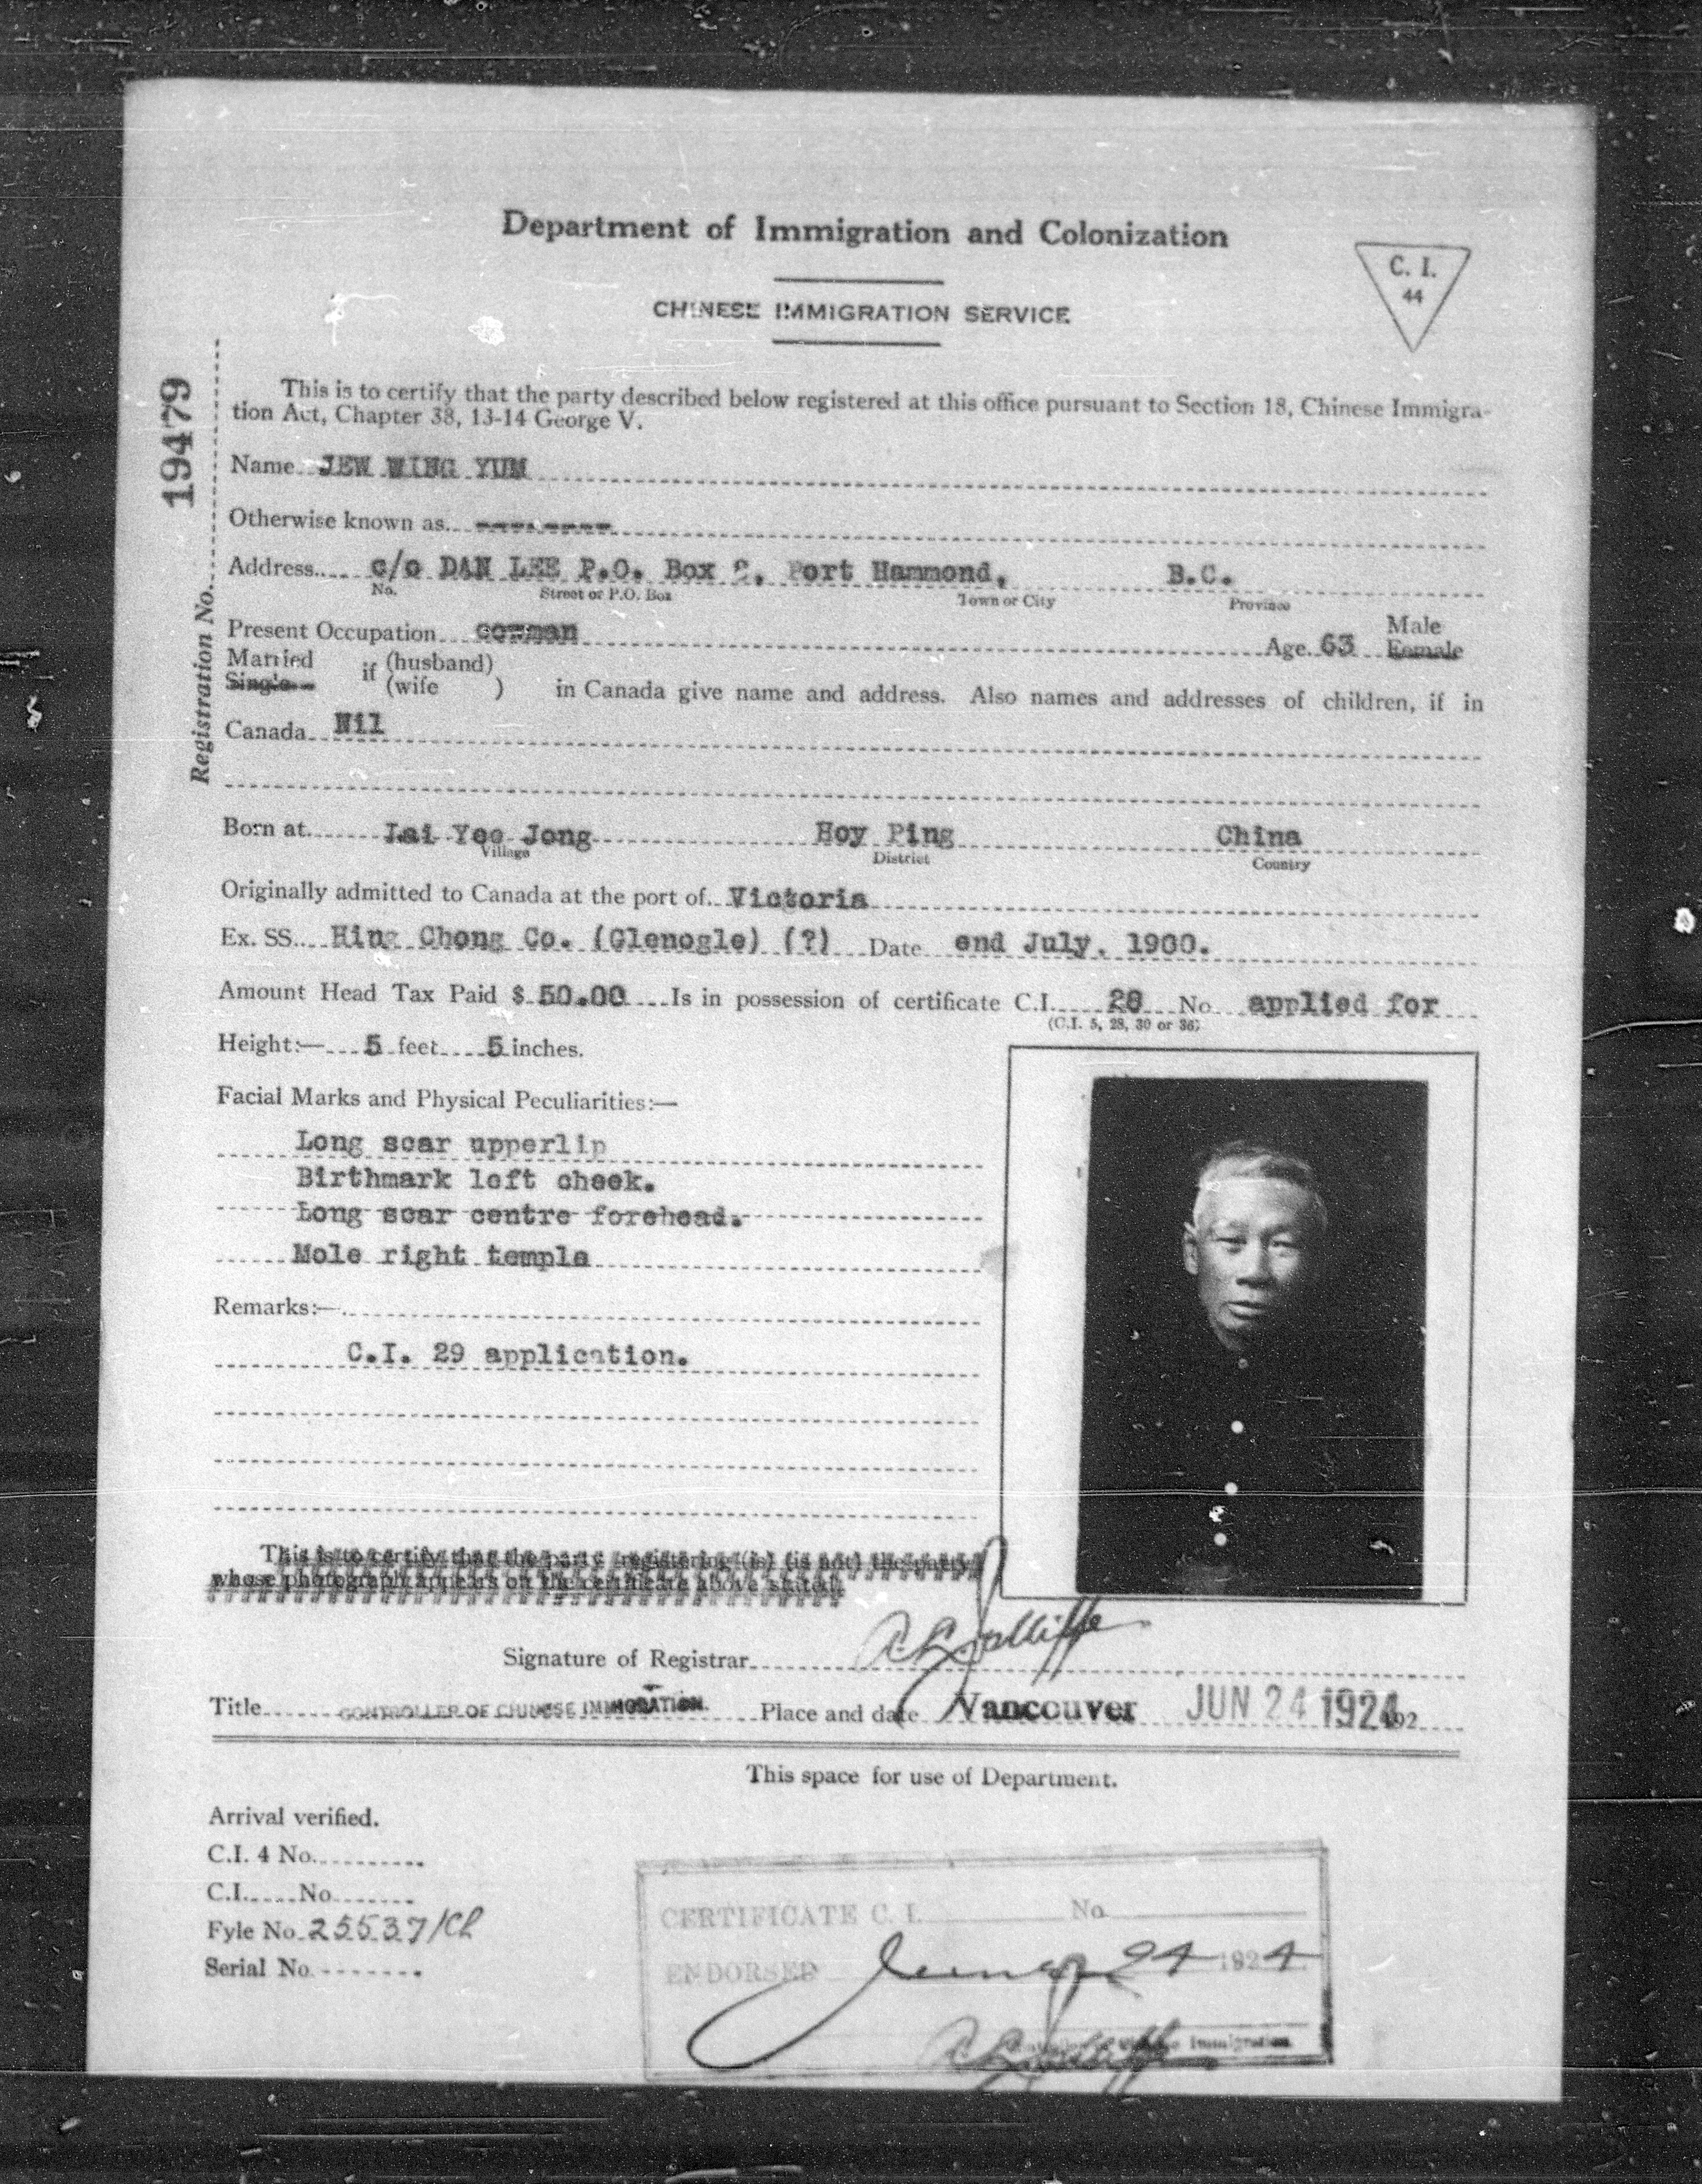 Department of Immigration and Colonization
C. I.
44
CHINESE IMMIGRATION SERVICE
Registration No. 19479
This is to certify that the party described below registered at this office pursuant to Section 18, Chinese Immigra-
tion Act, Chapter 38, 13-14 George V.
Name JEW WING YUM
Otherwise known as
Address c/o DAN LEE P.O. Box 2, Port Hammond, B.C.
No. Street or P.O. Box Town or City Province
Present Occupation Age 63 Male Female
Married Single if (husband) (wife ) in Canada give name and address. Also names and addresses of children, if in
Canada Nil
Born at Jai Yee Jong Hoy Ping China
Village District Country
Originally admitted to Canada at the port of Victoria
Ex. SS. Hing Chong Co. (Glenogle) (?) Date end July, 1900.
Amount Head Tax Paid $ 50.00 Is in possession of certificate C.I. 28 No. applied for
(C.I. 5, 28, 30 or 36)
Height:— 5 feet 5 inches.
Facial Marks and Physical Peculiarities:—
Long scar upperlip
Birthmark left cheek.
Long scar centre forehead.
Mole right temple
Remarks:—
C.I. 29 application.
This is to certify that the party registering (is) (is not) the party
whose photograph appears on the certificate above stated.
Signature of Registrar A L Jolliffe
Title CONTROLLER OF CHINESE IMMIGRATION. Place and date Vancouver JUN 24 1924 192
This space for use of Department.
Arrival verified.
C.I. 4 No.
C.I. No.
Fyle No. 25537/Ch
Serial No.
CERTIFICATE C. I. No.
ENDORSED June 24 1924
A L Jolliffe
Immigration